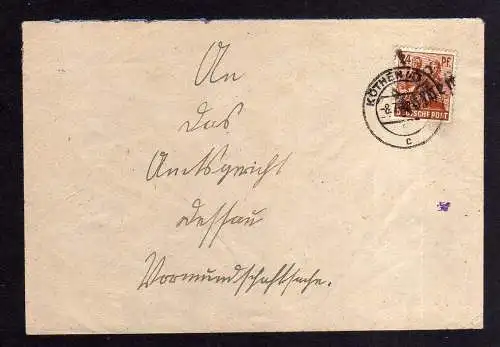 24 PF.
KÖTHEN
DEUTSCHE POST
c
An
das
Amtsgericht
Dessau
Vormundschaftsache.